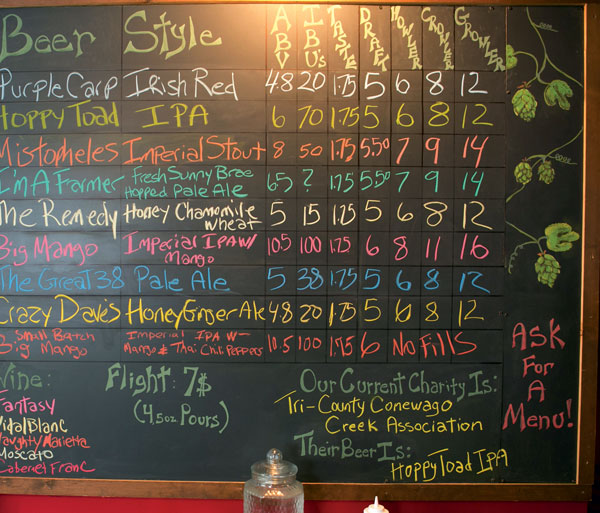 Beer Style ABV IBU's TASTE DRAFT HOWLER CROWLER GROWLER
Purple Carp Irish Red 4.8 20 1.75 5 6 8 12
Hoppy Toad IPA 6 70 1.75 5 6 8 12
Mistopheles Imperial Stout 8 50 1.75 5.50 7 9 14
I'm A Farmer Fresh Sunny Brae
Hopped Pale Ale 6.5 ? 1.75 5.50 7 9 14
The Remedy Honey Chamomile
wheat 5 15 1.75 5 6 8 12
Big Mango Imperial IPA w/
Mango 10.5 100 1.75 6 8 11 16
The Great 38 Pale Ale 5 38 1.75 5 6 8 12
Crazy Dave's Honey Ginger Ale 4.8 20 1.75 5 6 8 12
Small Batch
Big Mango Imperial IPA W-
Mango & Thai Chili Peppers 10.5 100 1.75 6 No Fills
Ask
For
A
Menu!
Wine:
Fantasy
Vidal Blanc
Naughty Marietta
Moscato
Cabernet Franc
Flight: 7$
(4.5oz Pours)
Our Current Charity Is:
Tri-County Conewago
Creek Association
Their Beer Is:
Hoppy Toad IPA